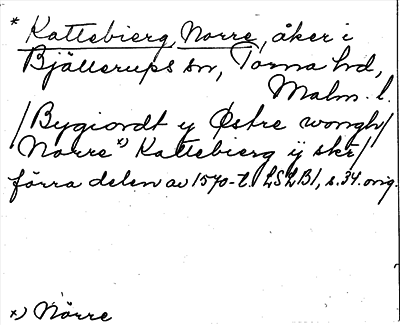 * Kattebierg, Norre, åker i
Bjällerups sn, Torna hd,
Malm. l.
/Bygiordt y Østre wongh/
Norre *) Kattebierg ij skr/
förra delen av 1570-t. LSLB1, s. 34. orig.
*) Nörre